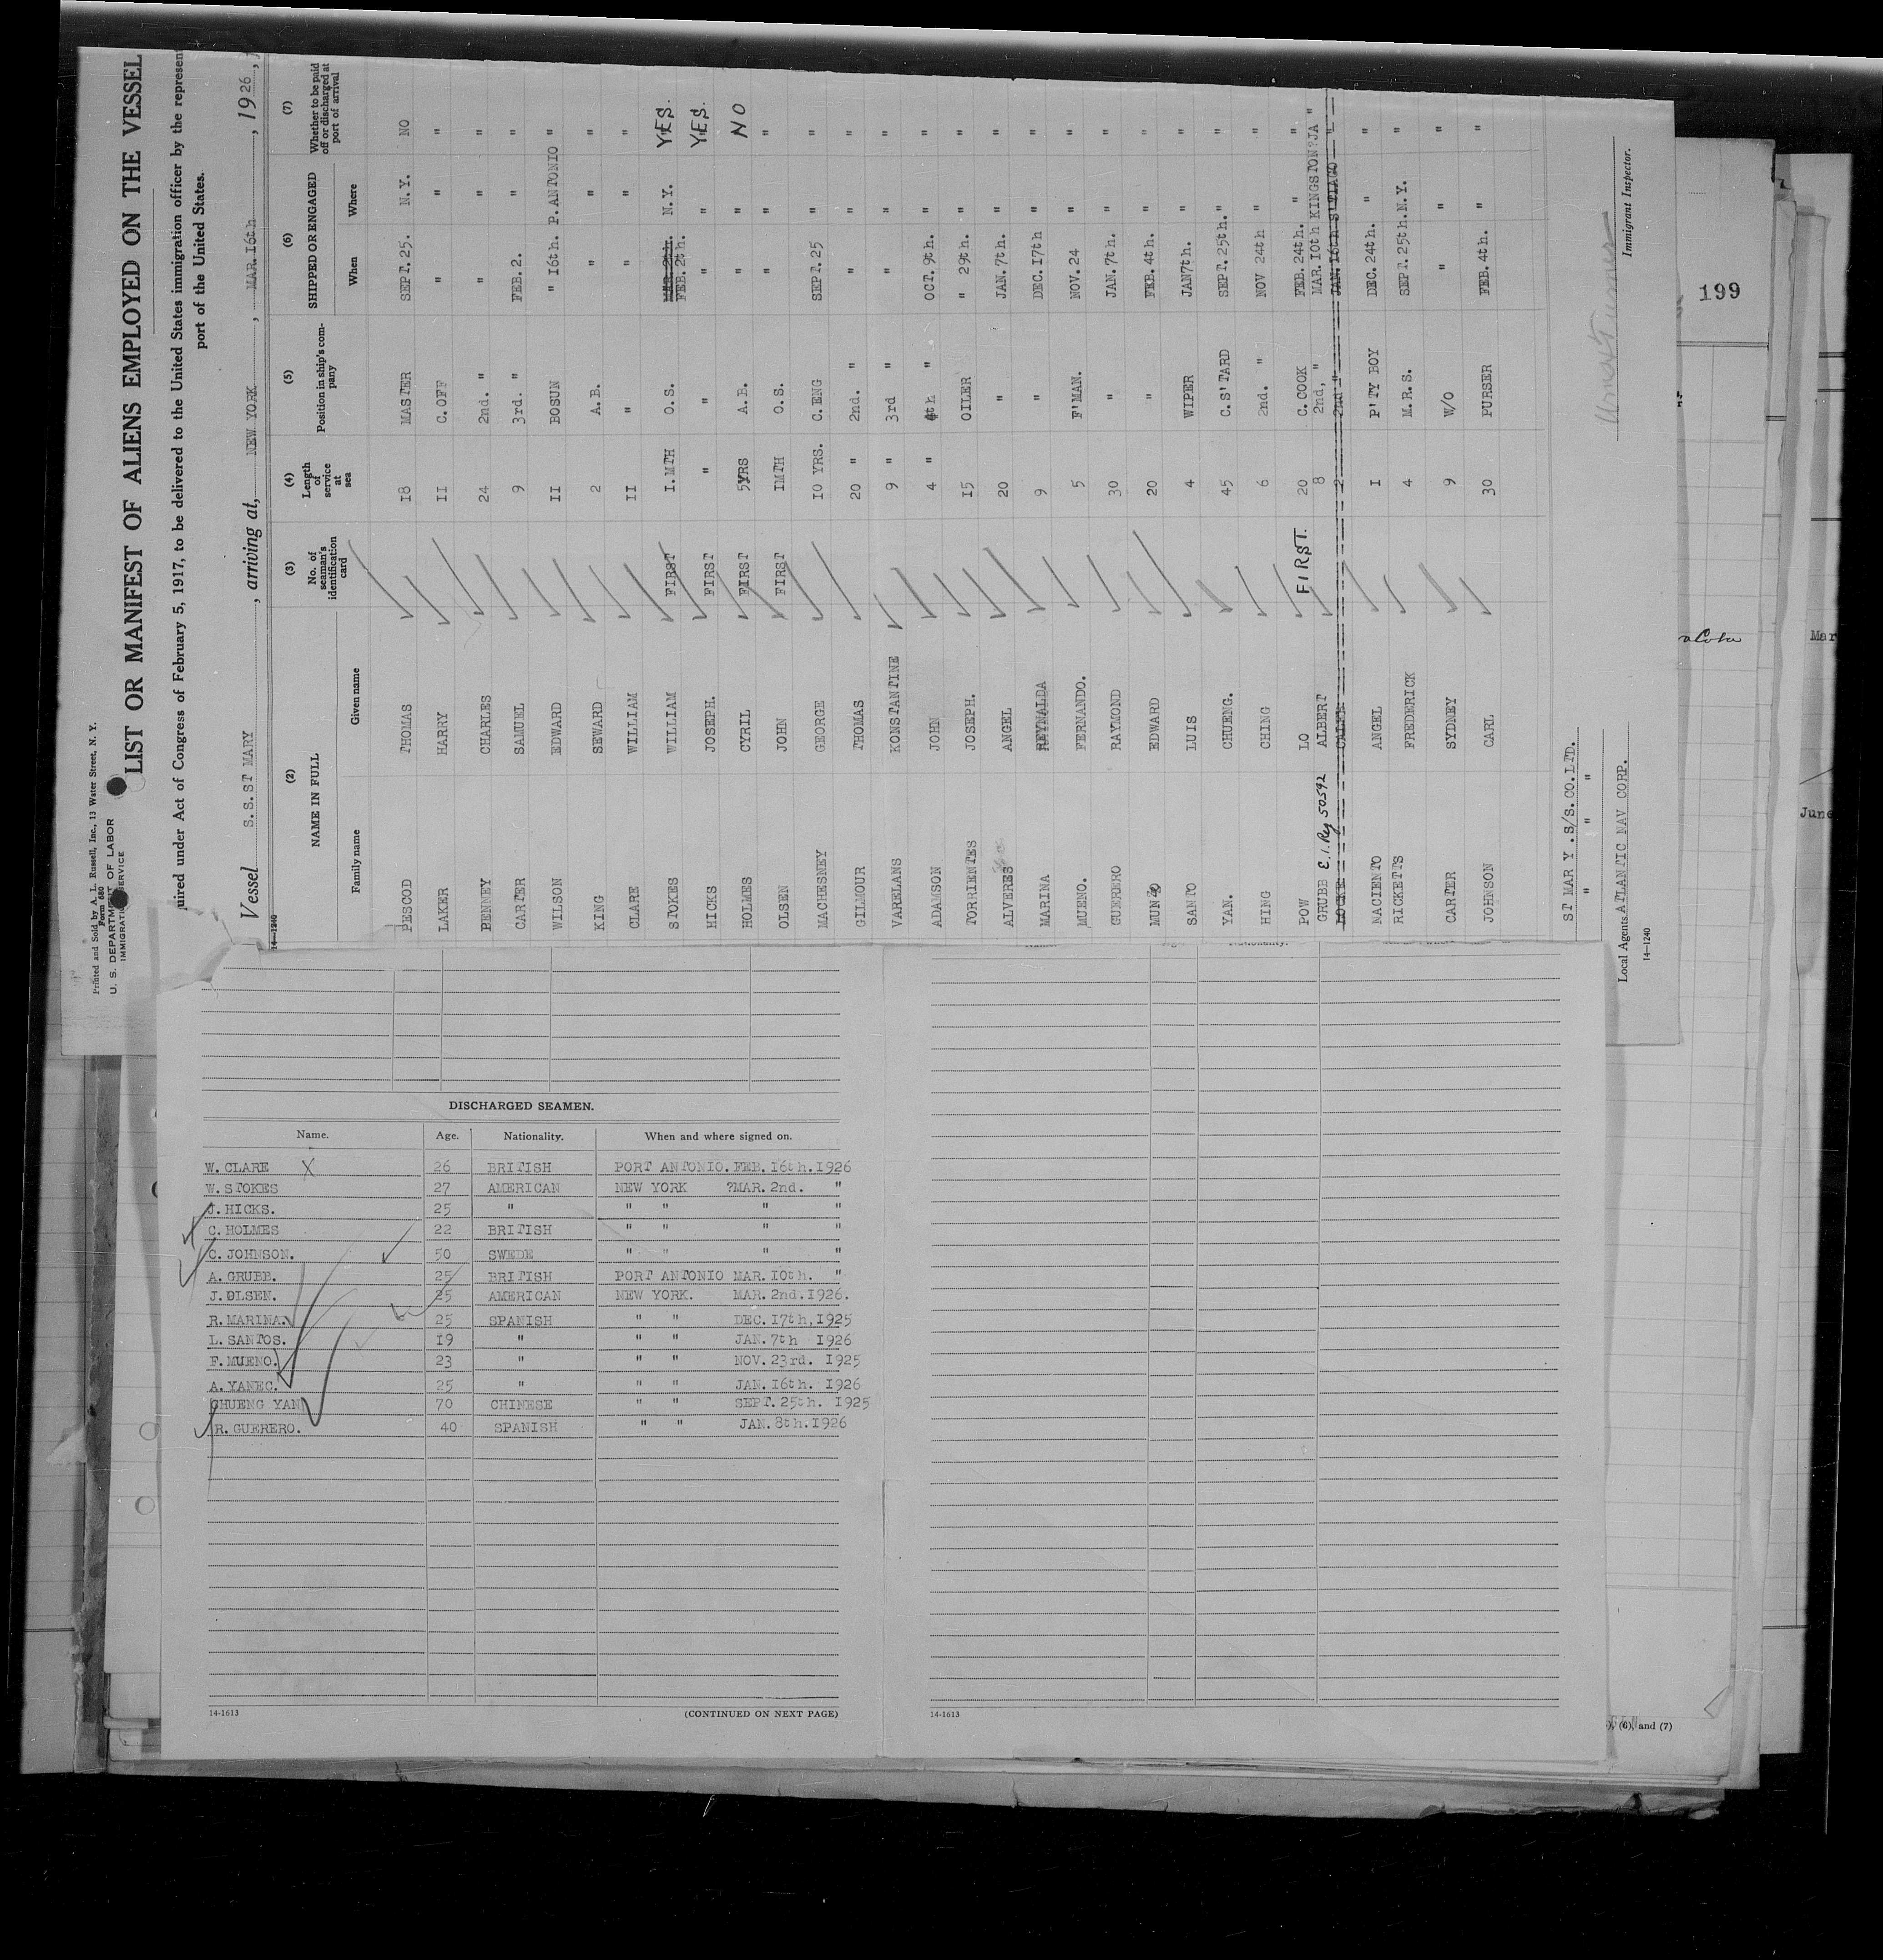 Printed and Sold by A. L. Russell, Inc., 13 Water Street, N. Y.
Form 680
U. S. DEPARTMENT OF LABOR
IMMIGRATION SERVICE
LIST OR MANIFEST OF ALIENS EMPLOYED ON THE VESSEL
uired under Act of Congress of February 5, 1917, to be delivered to the United States immigration officer by the represen
port of the United States.
Vessel S.S. ST MARY , arriving at, NEW YORK , MAR. 16th , 1926 ,
14—1240
(2) (3) (4) (5) (6) (7)
NAME IN FULL No. of seaman's identification card Length of service at sea Position in ship's company SHIPPED OR ENGAGED Whether to be paid off or discharged at port of arrival
Family name Given name When Where
PESCOD THOMAS 18 MASTER SEPT. 25. N.Y. NO
LAKER HARRY 11 C. OFF " " "
PENNEY CHARLES 24 2nd. " " " "
CARTER SAMUEL 9 3rd. " FEB. 2. " "
WILSON EDWARD 11 BOSUN " 16th. P. ANTONIO "
KING SEWARD 2 A.B. " " "
CLARE WILLIAM 11 " " " "
STOKES WILLIAM FIRST I. MTH O.S. FEB. 2th. N.Y. YES.
HICKS JOSEPH. FIRST " " " " YES.
HOLMES CYRIL FIRST 5YRS A.B. " " NO
OLSEN JOHN FIRST IMTH O.S. " " "
MACHESNEY GEORGE 10 YRS. C. ENG SEPT. 25 " "
GILMOUR THOMAS 20 " 2nd. " " " "
VARELANS KONSTANTINE 9 " 3rd " " " "
ADAMSON JOHN 4 " 4th " OCT. 9th. " "
TORRIENTES JOSEPH. 15 OILER " 29th. " "
ALVERES ANGEL 20 " JAN. 7th. " "
MARINA REYNALDA 9 " DEC. 17th " "
MUENO. FERNANDO. 5 F'MAN. NOV. 24 " "
GUERRERO RAYMOND 30 " JAN. 7th. " "
MUNO EDWARD 20 " FEB. 4th. " "
SANTO LUIS 4 WIPER JAN 7th. " "
YAN. CHUENG. 45 C. S'TARD SEPT. 25th. " "
HING CHING 6 2nd. " NOV 24th " "
POW LO 20 C. COOK FEB. 24th. " "
GRUBB E.I. Reg 50592 ALBERT FIRST. 8 2nd, " MAR. 10th KINGSTON?JA "
LOCKE CALEB 2 2nd " JAN. 16th S'TIAGO "
NACIENTO ANGEL I P'TY BOY DEC. 24th. " "
RICKETTS FREDERICK 4 M.R.S. SEPT. 25th. N.Y. "
CARTER SYDNEY 9 W/O " " "
JOHNSON CARL 30 PURSER FEB. 4th. " "
ST MARY .S/S. CO. LTD.
" " "
Local Agents ATLANTIC NAV CORP.
14—1240
Immigrant Inspector.
199
Mar
June
DISCHARGED SEAMEN.
Name. Age. Nationality. When and where signed on.
W. CLARE X 26 BRITISH PORT ANTONIO. FEB. 16th. 1926
W. STOKES 27 AMERICAN NEW YORK ?MAR. 2nd. "
J. HICKS. 25 " " " " "
C. HOLMES 22 BRITISH " " " "
C. JOHNSON. 50 SWEDE " " " "
A. GRUBB. 25 BRITISH PORT ANTONIO MAR. 10th. "
J. OLSEN. 25 AMERICAN NEW YORK. MAR. 2nd. 1926.
R. MARINA. 25 SPANISH " " DEC. 17th, 1925
L. SANTOS. 19 " " " JAN. 7th 1926
F. MUENO. 23 " " " NOV. 23rd. 1925
A. YANEC. 25 " " " JAN. 16th. 1926
CHUENG YAN 70 CHINESE " " SEPT. 25th. 1925
R. GUERERO. 40 SPANISH " " JAN. 8th. 1926
14-1613 (CONTINUED ON NEXT PAGE)
14-1613
), (6), and (7)